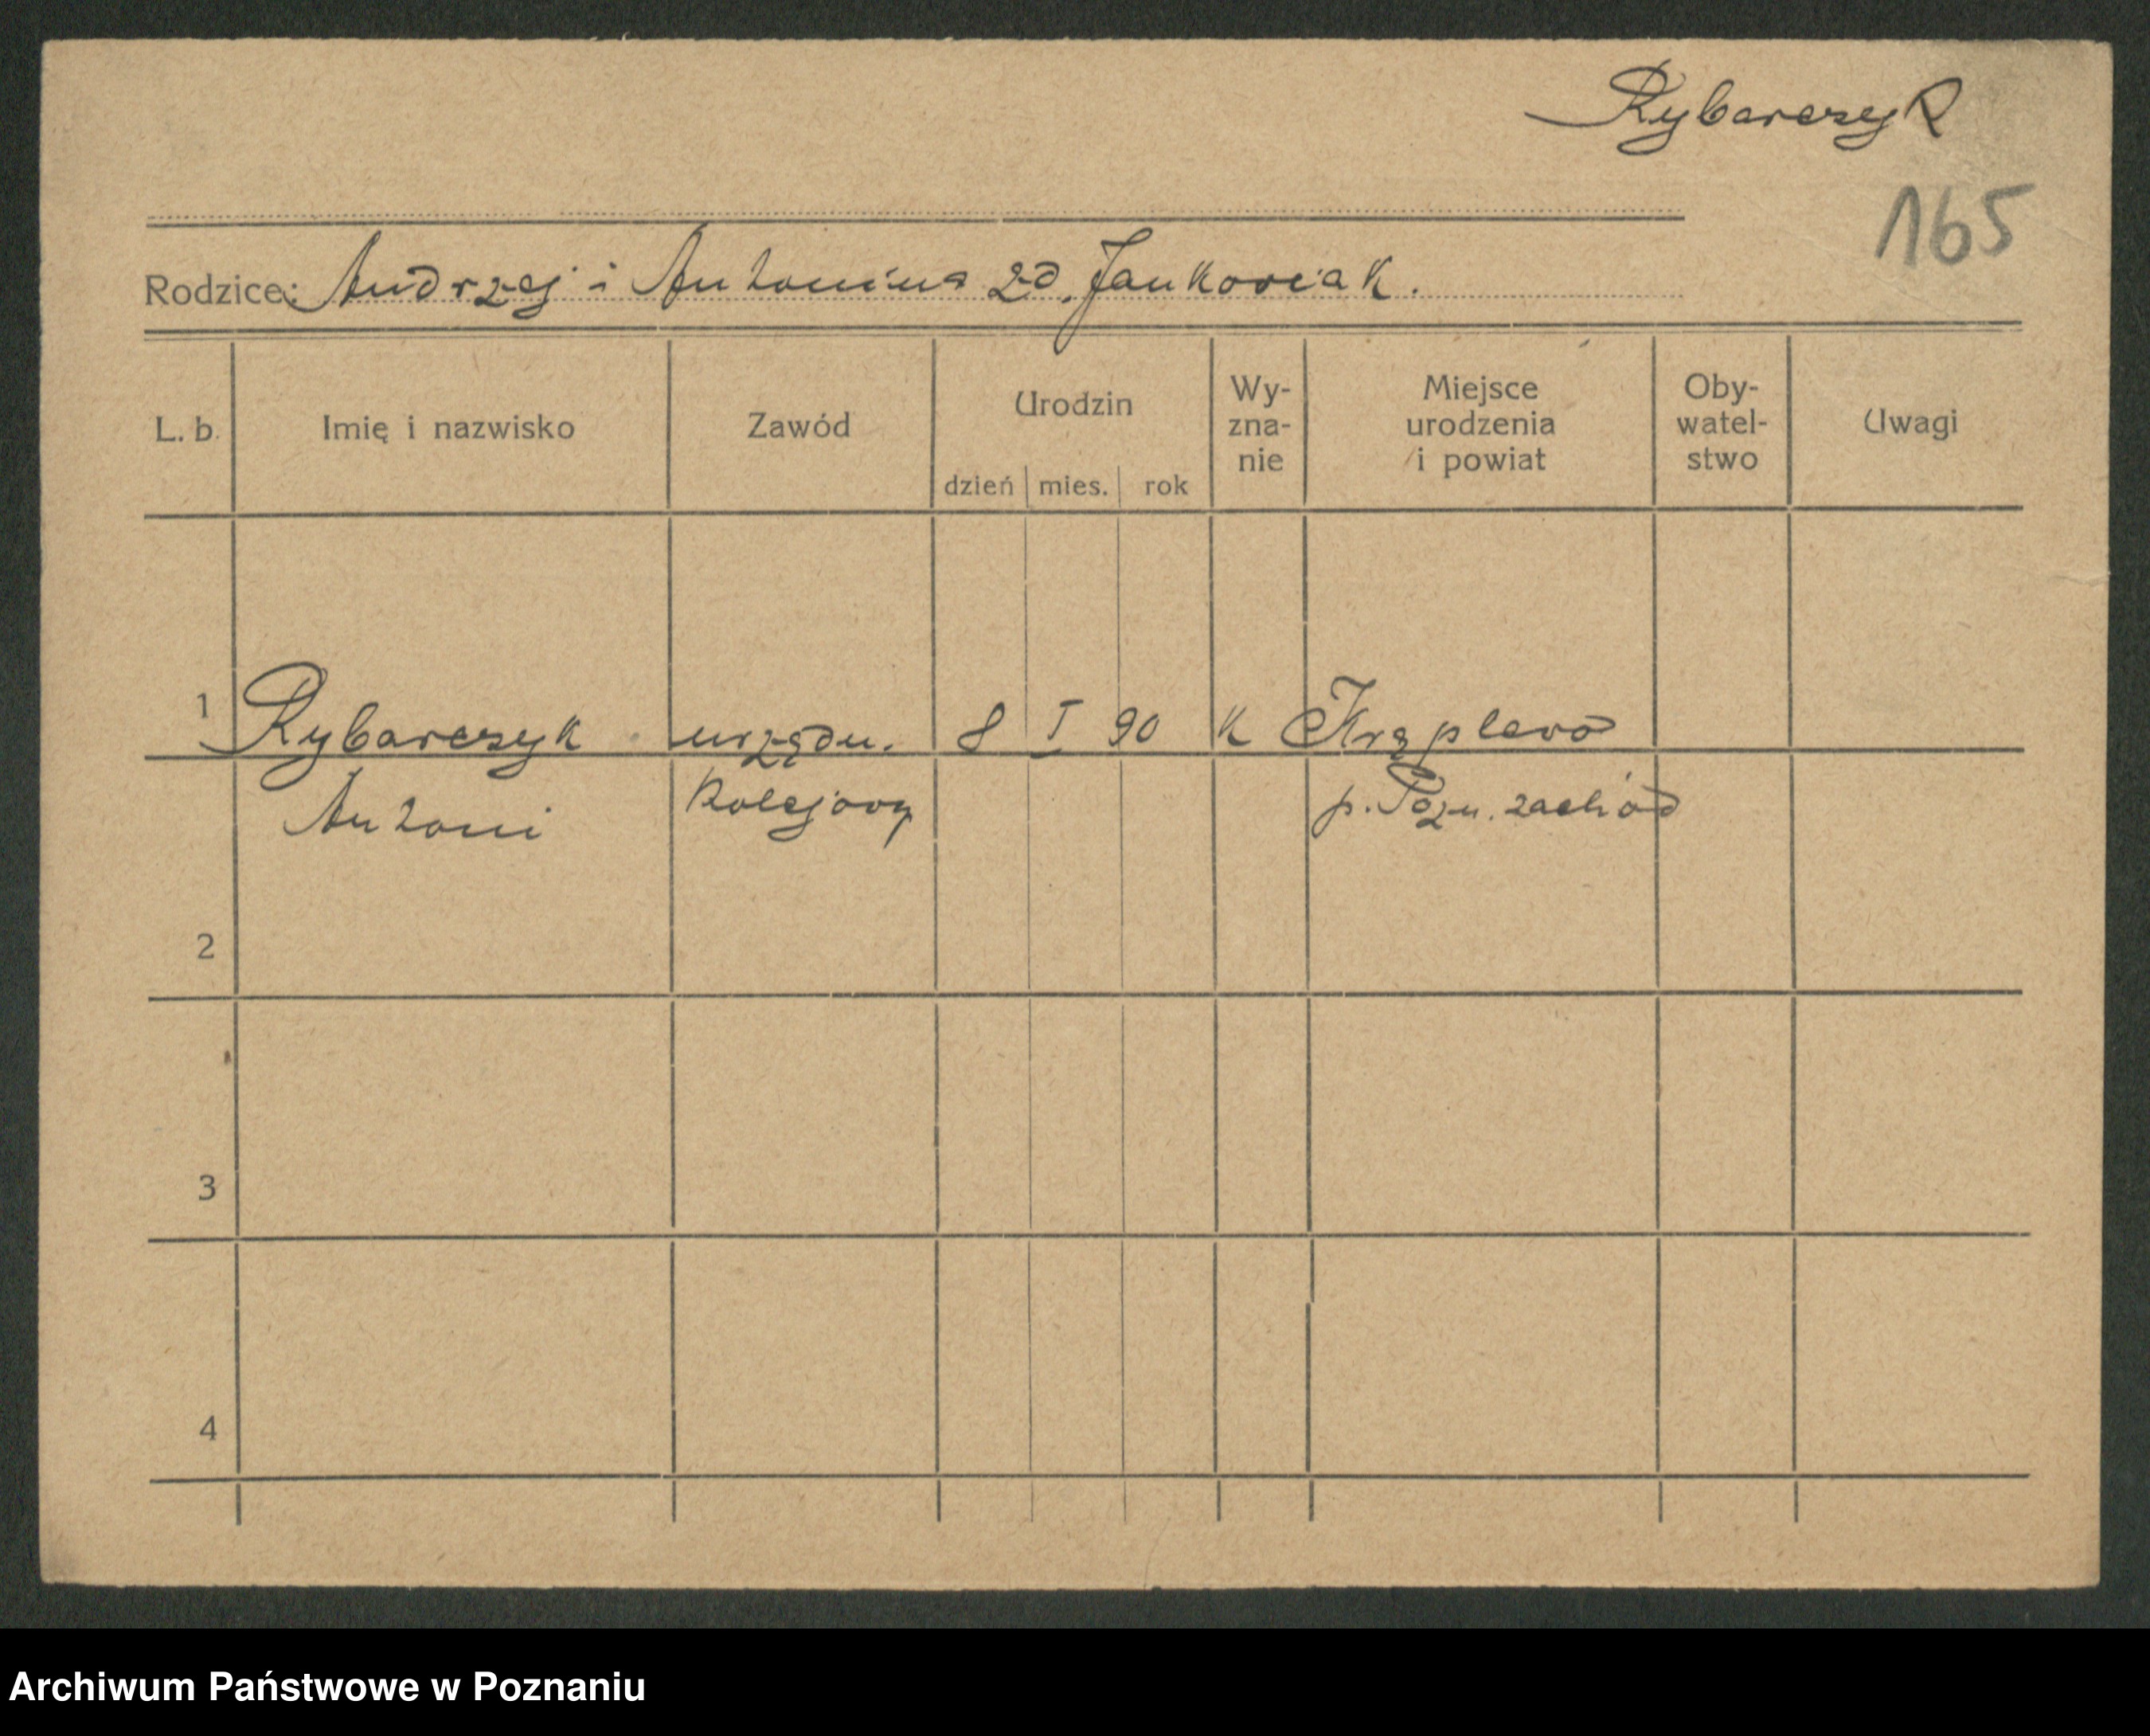 Rybarczyk
165
Rodzice: Andrzej i Antonina zd. Jankowiak.
L. b. Imię i nazwisko Zawód Urodzin dzień mies. rok Wy-zna-nie Miejsce urodzenia i powiat Oby-watel-stwo Uwagi
1 Rybarczyk urzędn. 8 I 90 K Krąplewo
Antoni kolejowy p. Pozn. zachód
2
3
4
Archiwum Państwowe w Poznaniu